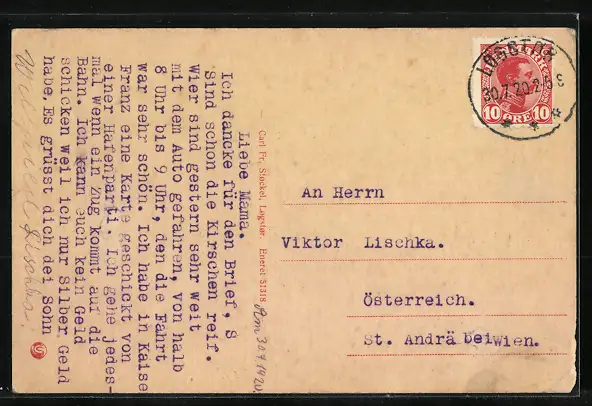 Liebe Mama.
Ich dancke für den Brief, S
Sind schon die Kirschen reif.
Wier sind gestern sehr weit
mit dem Auto gefahren, von halb
8 Uhr bis 9 Uhr, den die Fahrt
war sehr schön. Ich habe in Kaise
Franz eine Karte geschickt von
einer Hafenparti. Ich gehe jedes-
mal wenn ein Zug kommt auf die
Bahn. Ich kann euch kein Geld
schicken weil ich nur Silber Geld
habe. Es grüsst dich dei Sohn
Lischka.
Am 30.7.1920.
Carl Fr. Stockel, Løgstør Eneret 51318
LØGSTØR
30.7.20.2-5 S
10 ØRE 10
An Herrn
Viktor Lischka.
Österreich.
St. Andrä bei Wien.